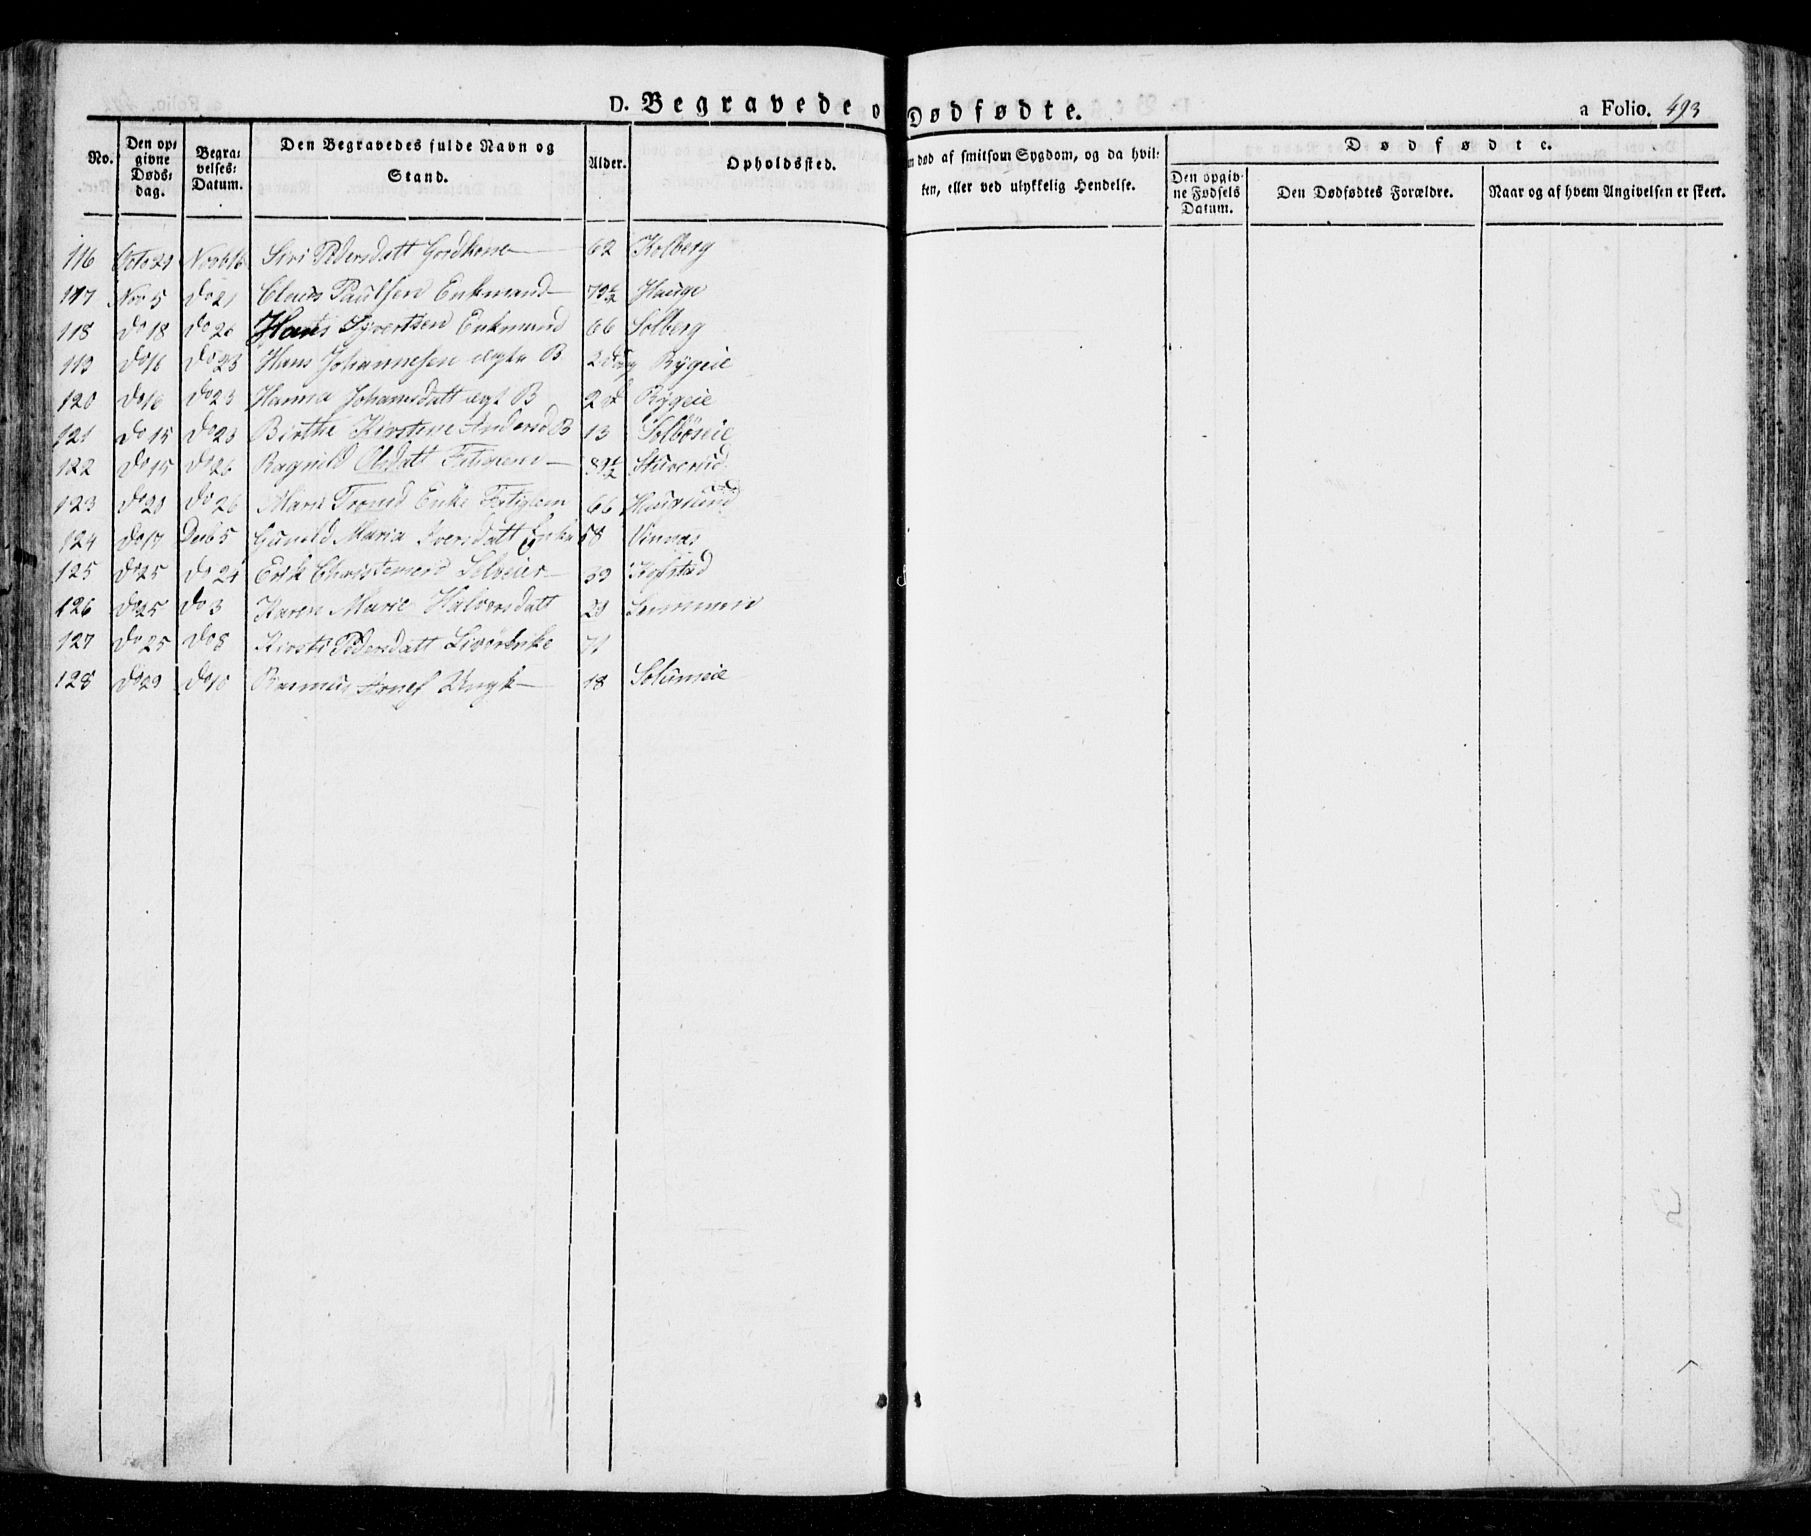 D. Begravede o Dødfødte. a Folio. 493
No. Den opgivne Dødsdag. Begravelses-Datum. Den Begravedes fulde Navn og Stand. Alder. Opholdssted. m død af smitsom Sygdom, og da hvilken, eller ved ulykkelig Hendelse. Dødfødte. Den opgivne Fødsels Datum. Den Dødfødtes Forældre. Naar og af hvem Angivelsen er skeet.
116 Octo 21 Novb 16 Siri Pedersdatt Gordkone 62 Kolberg
117 Nov 5 do 21 Claus Paulsen Enkmand 79½ Hauge
118 do 18 do 26 Hans Syvertsen Enkmand 66 Solberg
119 do 16 do 23 Hans Johannesen ægte B 2 dag Rygeie
120 do 16 do 23 Hanna Johansdatt ægt B 2 d Rygeie
121 do 15 do 23 Birthe Kirstine Andersd B 13
122 do 15 do 26 Ragnild Olsdatt 
123 do 20 do 26 Marie Enke 66
124 do 17 Decb 5 Gunild Maria Iversdatt Enke 58
125 do 25 do 24 Erik 39
126 do 25 do 3 Karen Marie Halvorsdatt 29
127 do 25 do 8 Kirsti Pedersdatt 71
128 do 29 do 10 Rasmus 18 Solumeie